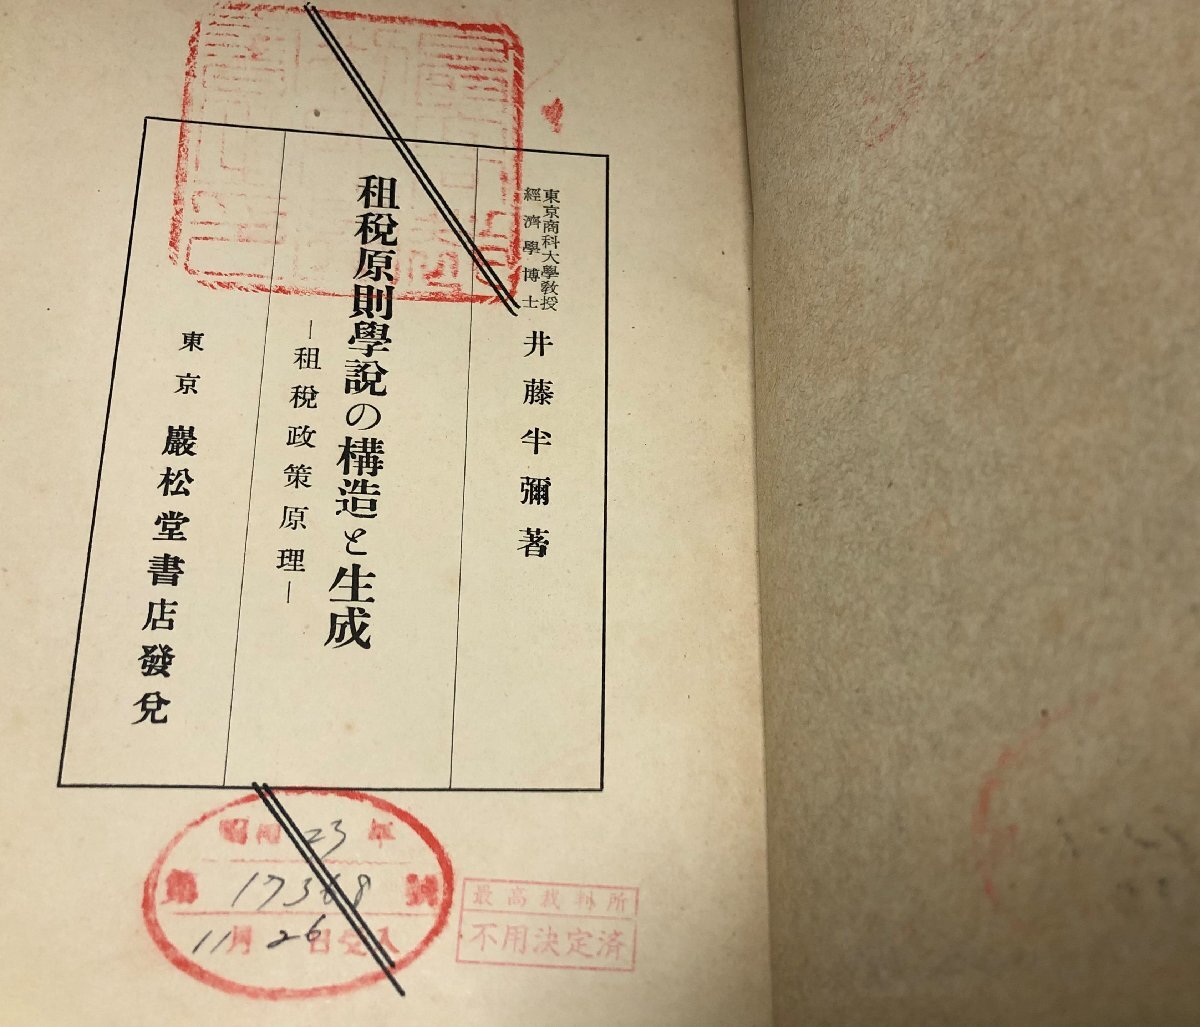 東京商科大學敎授
經濟學博士
井藤半彌著
租稅原則學說の構造と生成
―租稅政策原理―
東京 巖松堂書店發兌
昭和23年
第17368號
11月26日受入
最高裁判所
不用決定済